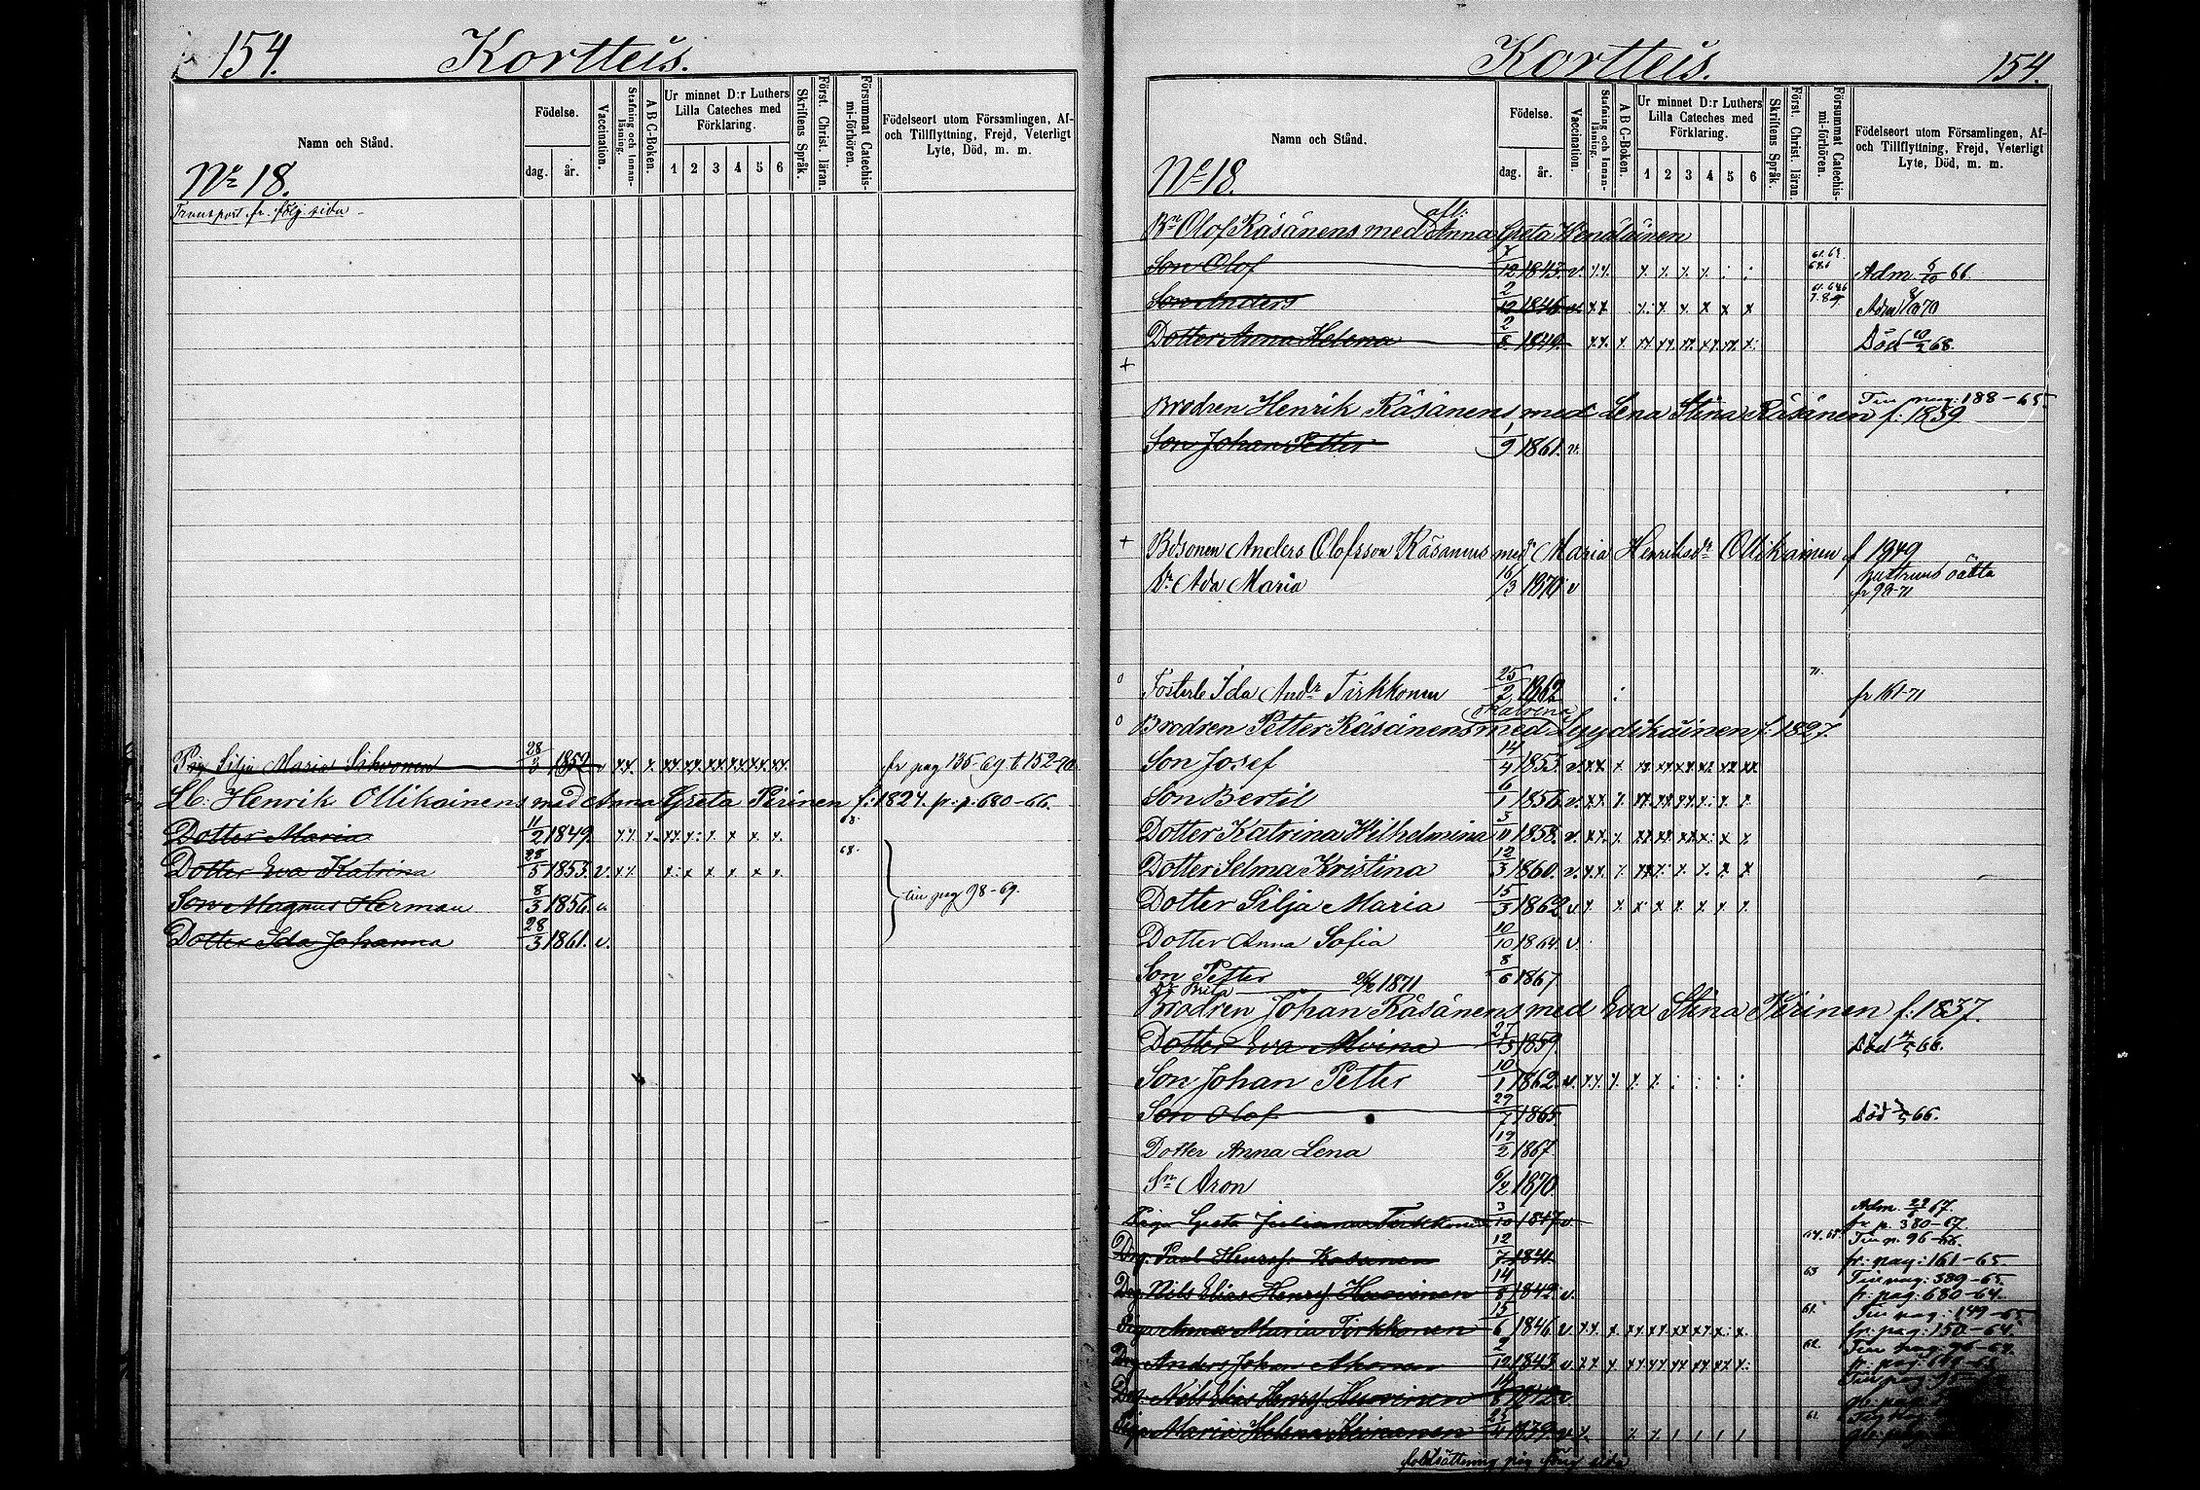 154. Kortteis.
Namn och Stånd.
Födelse.
dag. år.
Vaccination.
Stafning och Innan-läsning.
A B C-Boken.
Ur minnet D:r Luthers
Lilla Cateches med
Förklaring.
1 2 3 4 5 6
Skriftens Språk.
Först. Christ. läran.
Försummat Catechis-mi-förhören.
Födelseort utom Församlingen, Af-
och Tillflyttning, Frejd, Veterligt
Lyte, Död, m. m.
No 18.
Transport fr. följ. sida
Pig. Silja Maria Sihvonen 28/3 1852 v fr pag 135-69 t. 152-70
Lb: Henrik Ollikainens med Anna Greta Piirinen f: 1824. fr. p. 680-66.
Dotter Maria 11/2 1849
Dotter Eva Katrina 28/5 1853. v. 68.
Son Magnus Herman 8/3 1856. v. till pag 98-69.
Dotter Ida Johanna 28/3 1861. v.
Kortteis. 154.
Namn och Stånd.
Födelse.
dag. år.
Vaccination.
Stafning och Innan-läsning.
A B C-Boken.
Ur minnet D:r Luthers
Lilla Cateches med
Förklaring.
1 2 3 4 5 6
Skriftens Språk.
Först. Christ. läran.
Försummat Catechis-mi-förhören.
Födelseort utom Församlingen, Af-
och Tillflyttning, Frejd, Veterligt
Lyte, Död, m. m.
No 18.
Bn Olof Räsänens med afl: Anna Greta Wenäläinen
Son Olof 7/12 1843. v. Adm. 66.
Son Anders 2/12 1846. v. Adm 70
Dotter Anna Helena 2/8 1849. Död 10/2 68.
+
Brodren Henrik Räsänens med Lena Stina Räsänen f: 1839 Till pag: 188-65.
Son Johan Petter 1/9 1861. v.
+ Bdsonen Anders Olofsson Räsänens med Maria Henriksdr Ollikainen f 1849
Dr Ada Maria 16/3 1870 v
fr 98-71
0 Fosterb Ida Andr Tirkkonen 25/2 1862 71.
0 Brodren Petter Räsänens med Katrina Lyydikäinen f: 1827.
Son Josef 14/4 1853. v.
Son Bertil 6/1 1856. v.
Dotter Katrina Wilhelmina 3/11 1858. v.
Dotter Selma Kristina 12/3 1860. v.
Dotter Silja Maria 15/3 1862. v
Dotter Anna Sofia 10/10 1864 v.
Son Petter 8/6 1867.
Dr Brita 1871
Brodren Johan Räsänens med Eva Stina Piirinen f: 1837.
Dotter Eva Alvina 27/3 1859. Död 66.
Son Johan Petter 10/1 1862. v.
Son Olof 29/7 1865. Död 66.
Dotter Anna Lena 19/2 1867.
Sn Aron 6/2 1870
Piga Greta Juliana Tirkkonen 3/10 1847 v. Adm. 67. fr p. 380-67.
Drg. Paul Henrsf. Kasanen 12/7 1841. Till p. 96-66. fr: pag: 161-65.
Drg. Nils Elias Henrsf. Huovinen 14/8 1842 v. 63 Till pag: 389-65. fr. pag: 680-64.
Piga Anna Maria Tirkkonen 15/6 1846 v. 61. Till pag: 149-65. fr: pag: 150-64.
Drg Anders Johan Ahonen 2/12 1843 v. 62.
Drg. Nils Elias Henrsf Huovinen 14/8 1842 v.
Piga Maria Helena Keinänen 25/4 1839 v. 61.